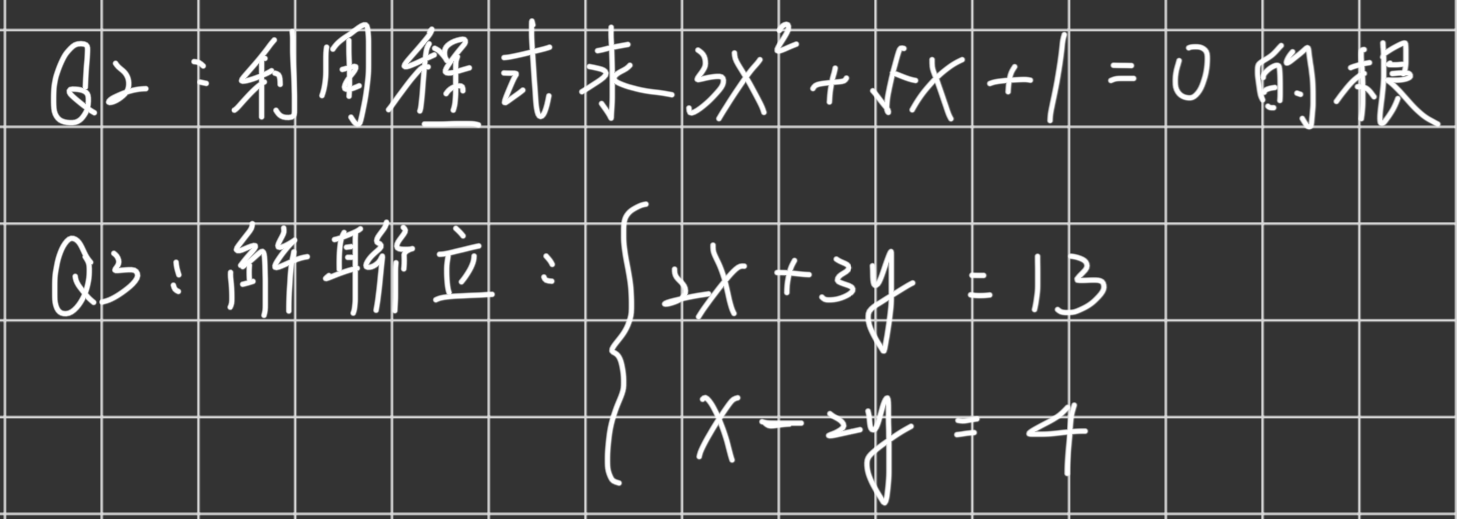 Q2：利用程式求 3x² + 5x + 1 = 0 的根
Q3：解聯立：{ 2x + 3y = 13
x - 2y = 4